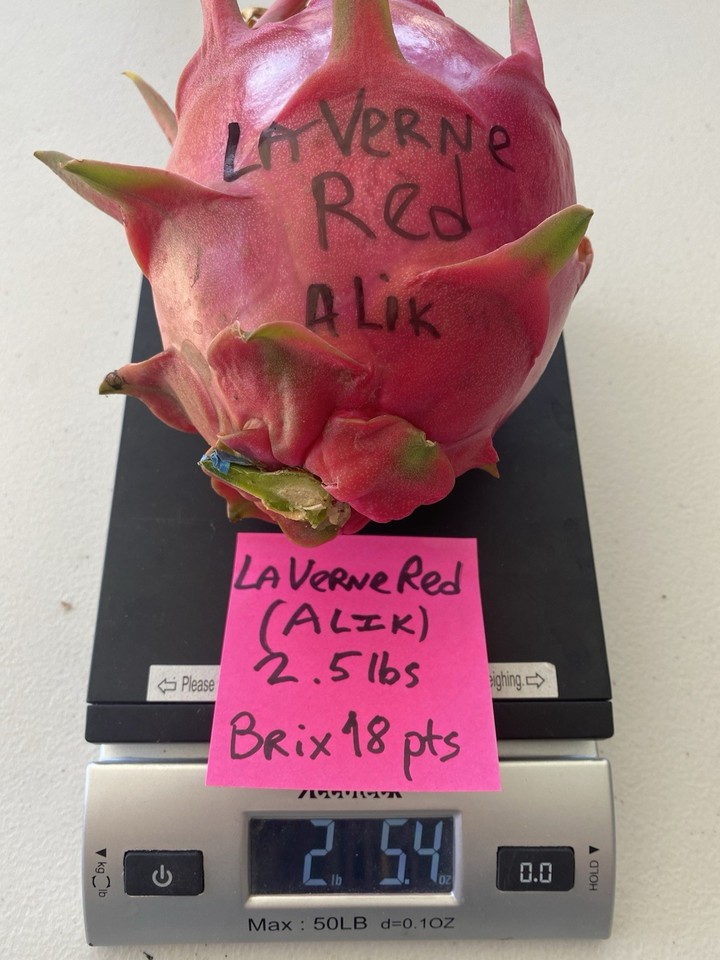 LAVERNE
Red
ALiK
LAVERNE Red
(ALIK)
2.5 lbs
BRix 18 pts
⇦ Please
eighing. ⇨
2 lb 5.4 oz
kg lb
0.0
HOLD
Max : 50LB d=0.1OZ